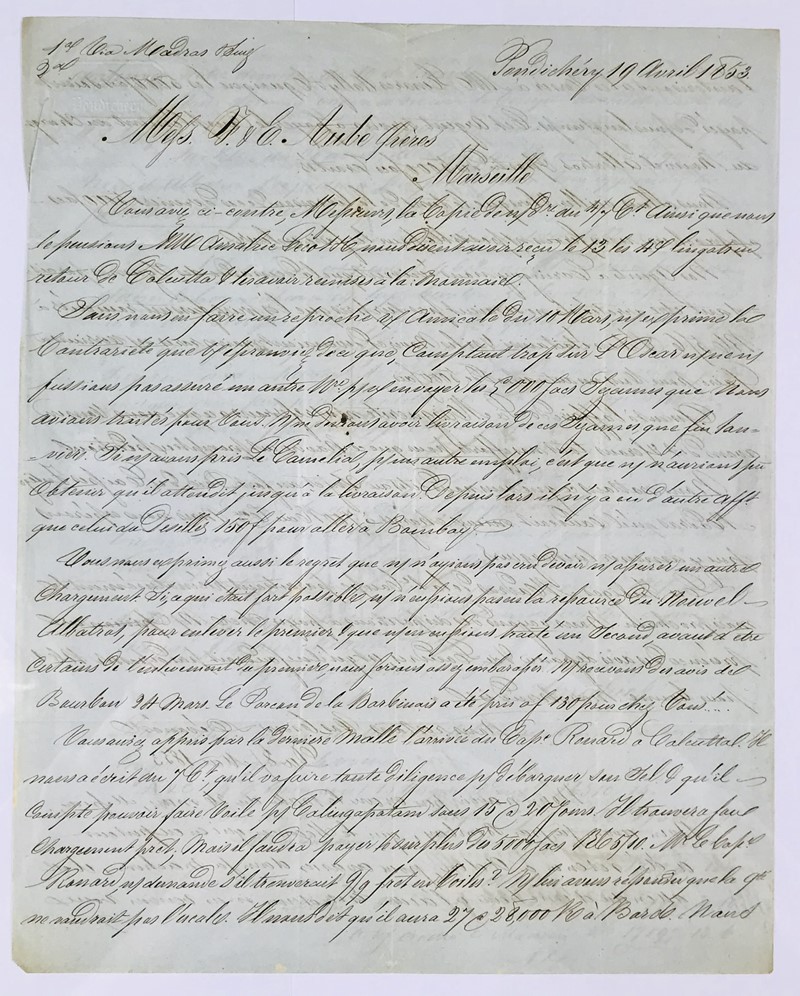 1re Via Madras &
2de
Pondichéry 19 Avril 1853.
Mess. F. & E. Aube frères
Marseille
Vous avez ci-contre Messieurs, la Copie de n/ du 4/ Ct. Ainsi que nous
le pensions MM Amalric nous disent avoir reçu le 13 les 47 lingots en
retour de Calcutta & les avoir remises à la monnaie.
Sans nous en faire un reproche v/ Amicale du 10 Mars, n/ exprime la
Contrariété que v/ éprouviez de ce que, Comptant trop sur l'Oscar n/ n'en
fussions pas assuré un autre Nre. p/ v/ envoyer les 5000 sacs Sezames que Nous
avions traités pour Vous. N/ ne devions avoir livraison de ces Sezames que fin Jan=
=vier. Si n/ avons pris Le Camelia, p/ un autre emploi, c'est que n/ n'aurions pu
Obtenir qu'il attendit jusqu'à la livraison. Depuis lors il n'y a eu d'autre afft.
que celui du 150 f pour aller à Bombay.
Vous nous exprimez aussi le regret que n/ n'ayions pas cru devoir v/ assurer un autre
Chargement Si, ce qui était fort possible, n/ n'eussions pas eu la ressource du Nouvel
Albatros, pour enlever le premier & que n/ en eussions traité un Second, avant d'être
Certains de l'enlèvement du premier nous serions assez embarassés. N/ recevons des avis de
Bourbon 24 Mars. Le Parcou de la Barbinais a été pris à f 130 pour chez Vous....
Vous aurez appris par la dernière Malle l'arrivée du Cape. Renard à Calcutta. Il
nous a écrit du 7 Ct., qu'il va faire toute diligence p/ débarquer son Sel & qu'il
Compte pouvoir faire Voile p/ Calingapatam sous 15 à 20 Jours. Il trouvera son
Chargement prêt, Mais il faudra payer le surplus des 5000 sacs R 6 5/10. Mr. Le Cape.
Renard n/ demande s'il trouverait q/q fret en Toiles? N/ lui avons répondu que la qté
ne vaudrait pas l'escale. Il nous dit qu'il aura 27 à 28,000 R à Bord. Nous